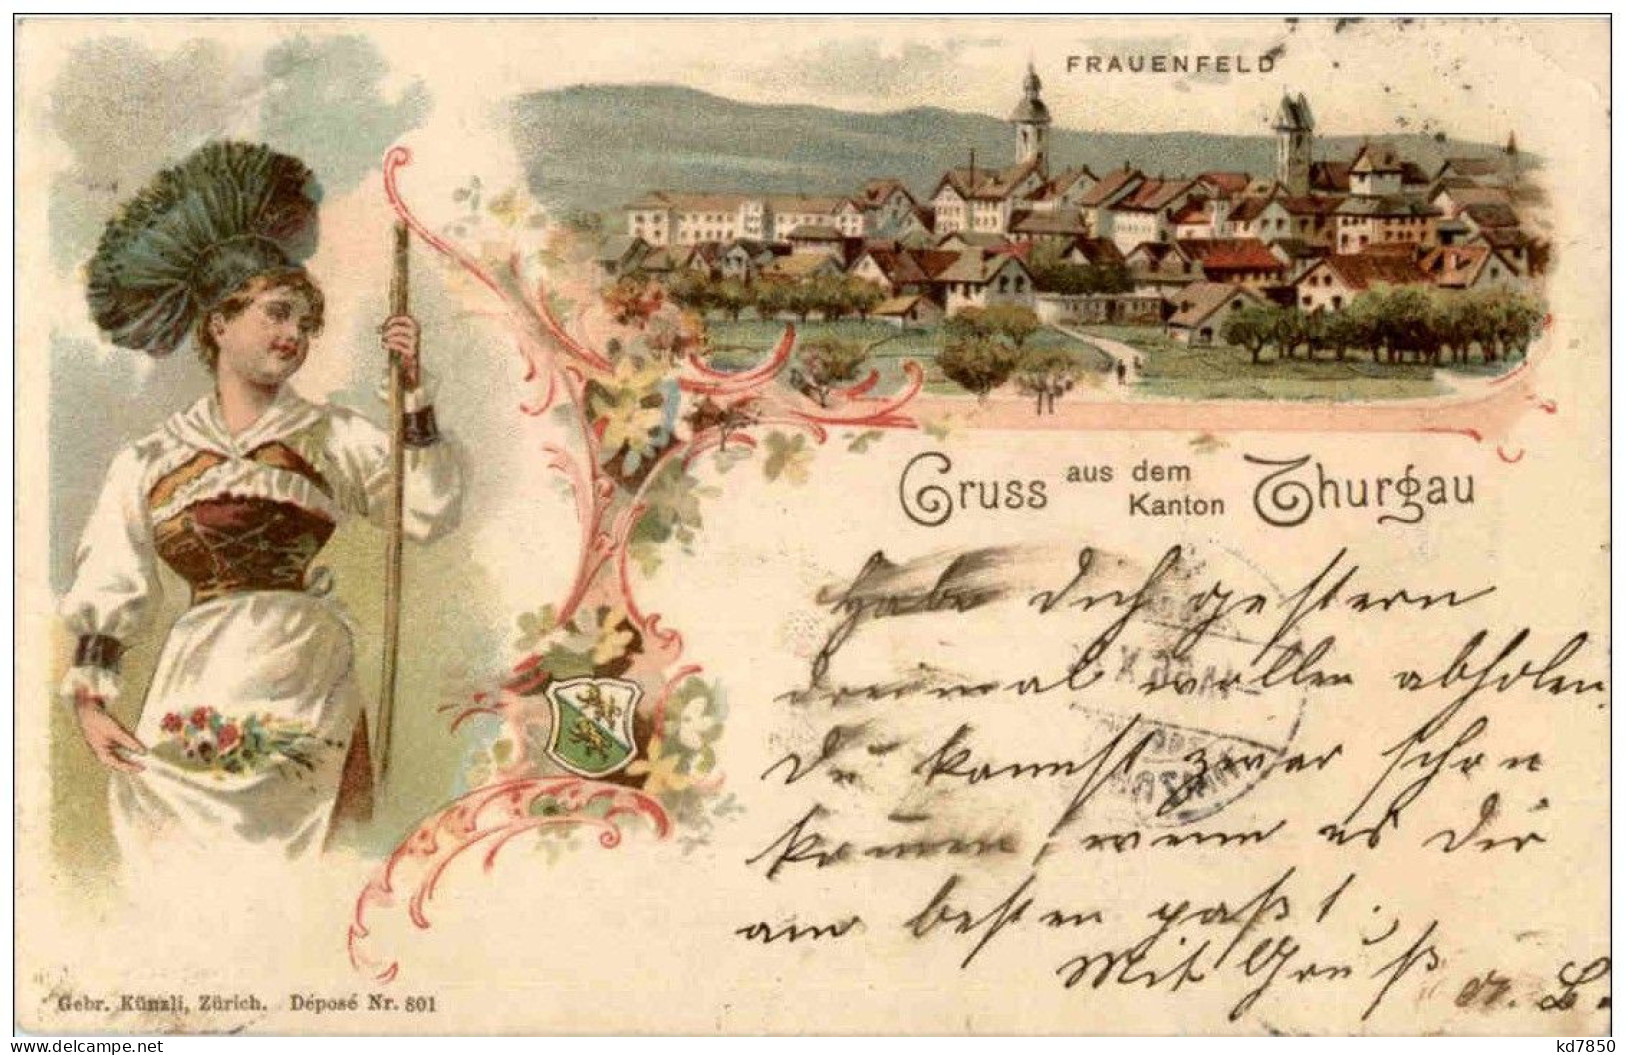 FRAUENFELD
Gruss aus dem Kanton Thurgau
Habe Dich gestern
dreimal wollen abholen.
Du kannst zwar schon
kommen, wenn es Dir
am besten paßt.
Mit Gruß
Gebr. Künzli, Zürich. Déposé Nr. 801
www.delcampe.net
kd7850